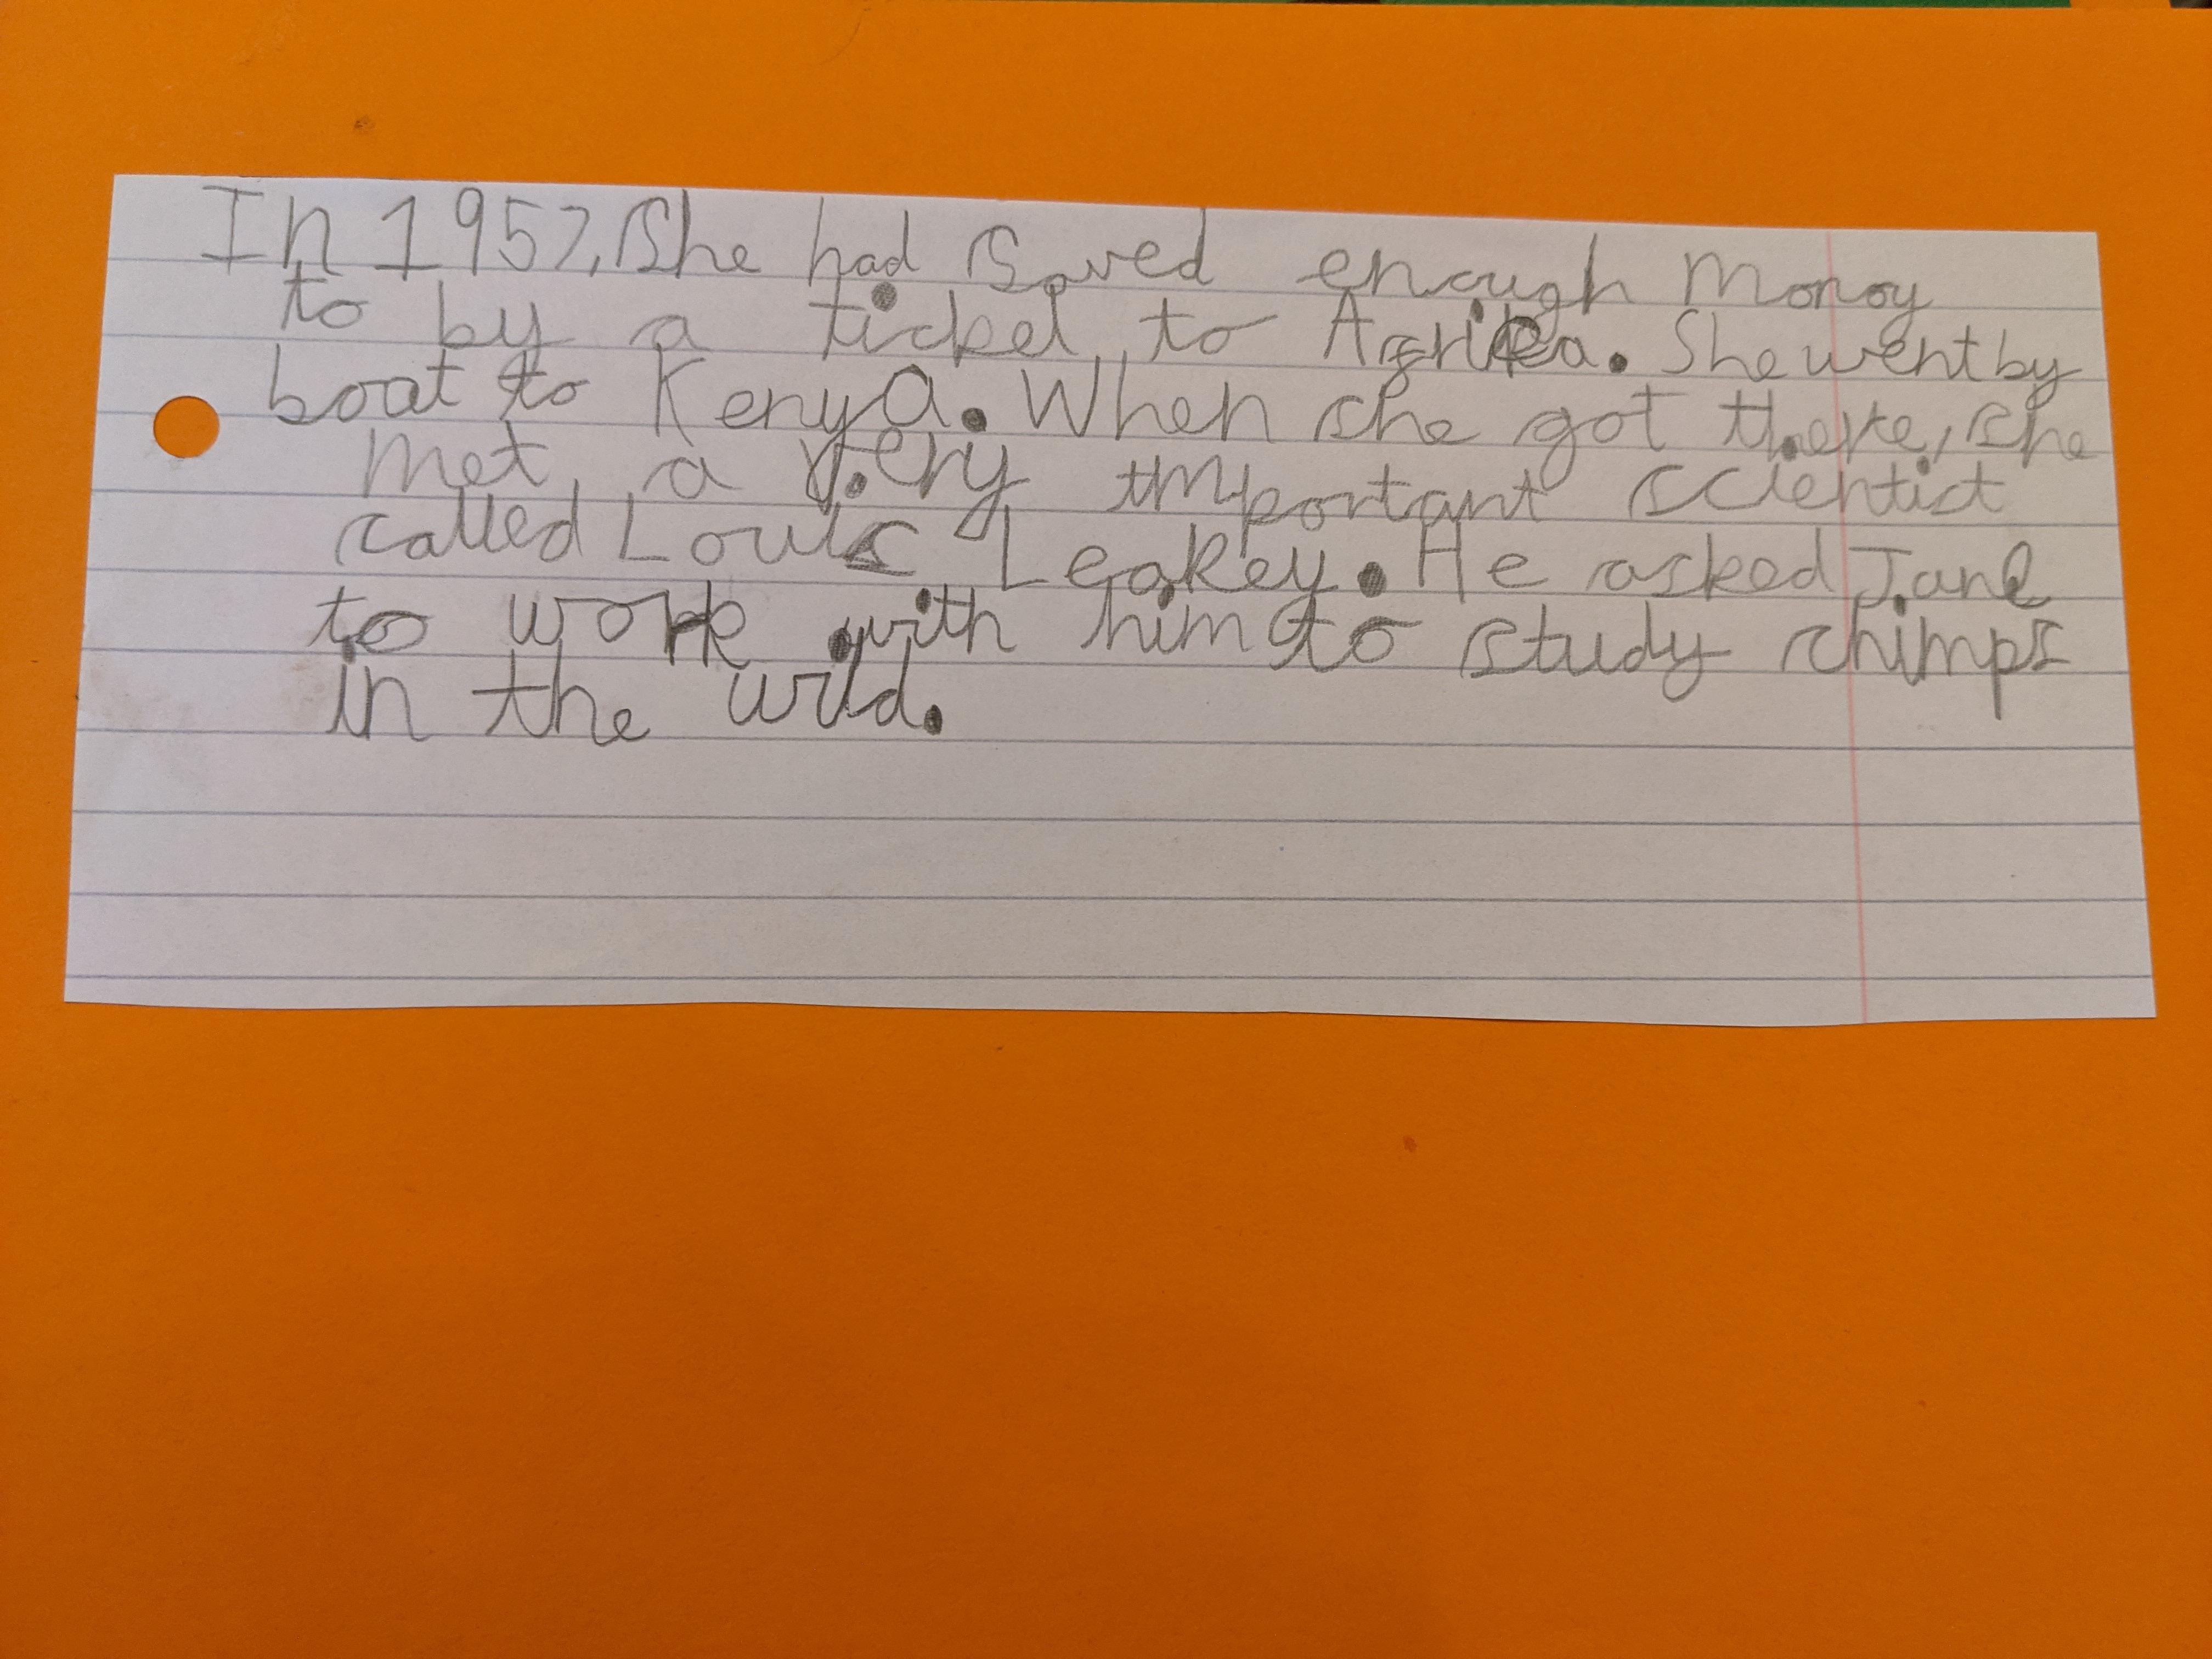 In 1957, she had saved enough money
to by a ticket to Afrika. She went by
boat to Kenya. When she got there, she
met a very important scientist
called Louis Leakey. He asked Jane
to work with him to study chimps
in the wild.